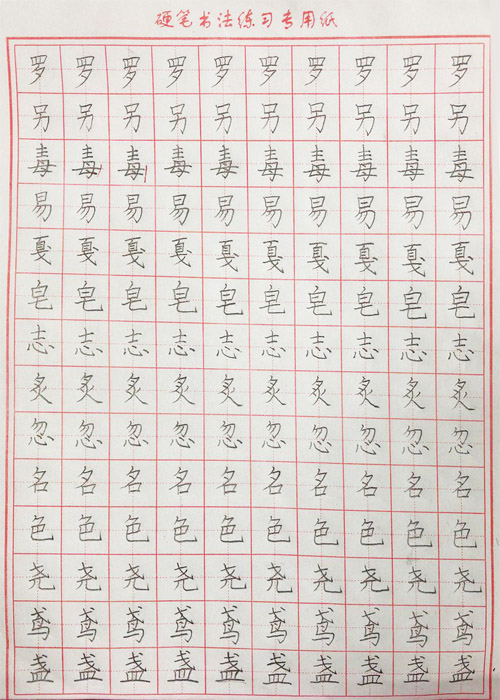 硬笔书法练习专用纸
罗罗罗罗罗罗罗罗罗罗
另另另另另另另另另另
毒毒毒毒毒毒毒毒毒毒
易易易易易易易易易易
戛戛戛戛戛戛戛戛戛戛
皂皂皂皂皂皂皂皂皂皂
志志志志志志志志志志
炙炙炙炙炙炙炙炙炙炙
忽忽忽忽忽忽忽忽忽忽
名名名名名名名名名名
色色色色色色色色色色
尧尧尧尧尧尧尧尧尧尧
鸢鸢鸢鸢鸢鸢鸢鸢鸢鸢
盏盏盏盏盏盏盏盏盏盏